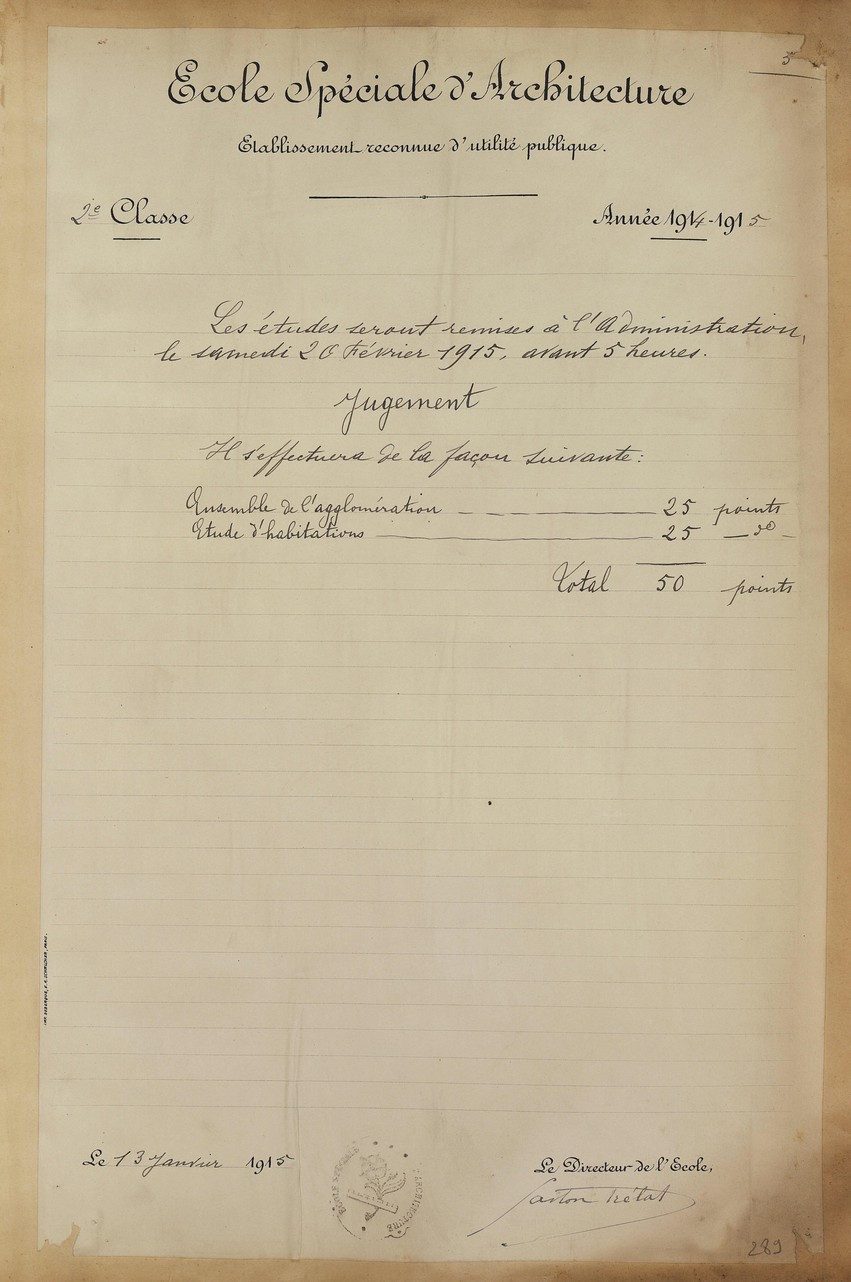 5
Ecole Spéciale d'Architecture
Etablissement reconnue d'utilité publique.
2e Classe
Année 1914-1915
Les études seront remises à l'Administration,
le samedi 20 Février 1915, avant 5 heures.
Jugement
Il s'effectuera de la façon suivante:
Ensemble de l'agglomération 25 points
Etude d'habitations 25 do
Total 50 points
Le 13 Janvier 1915
ECOLE SPECIALE D'ARCHITECTURE
Le Directeur de l'Ecole,
Gaston Trélat
289